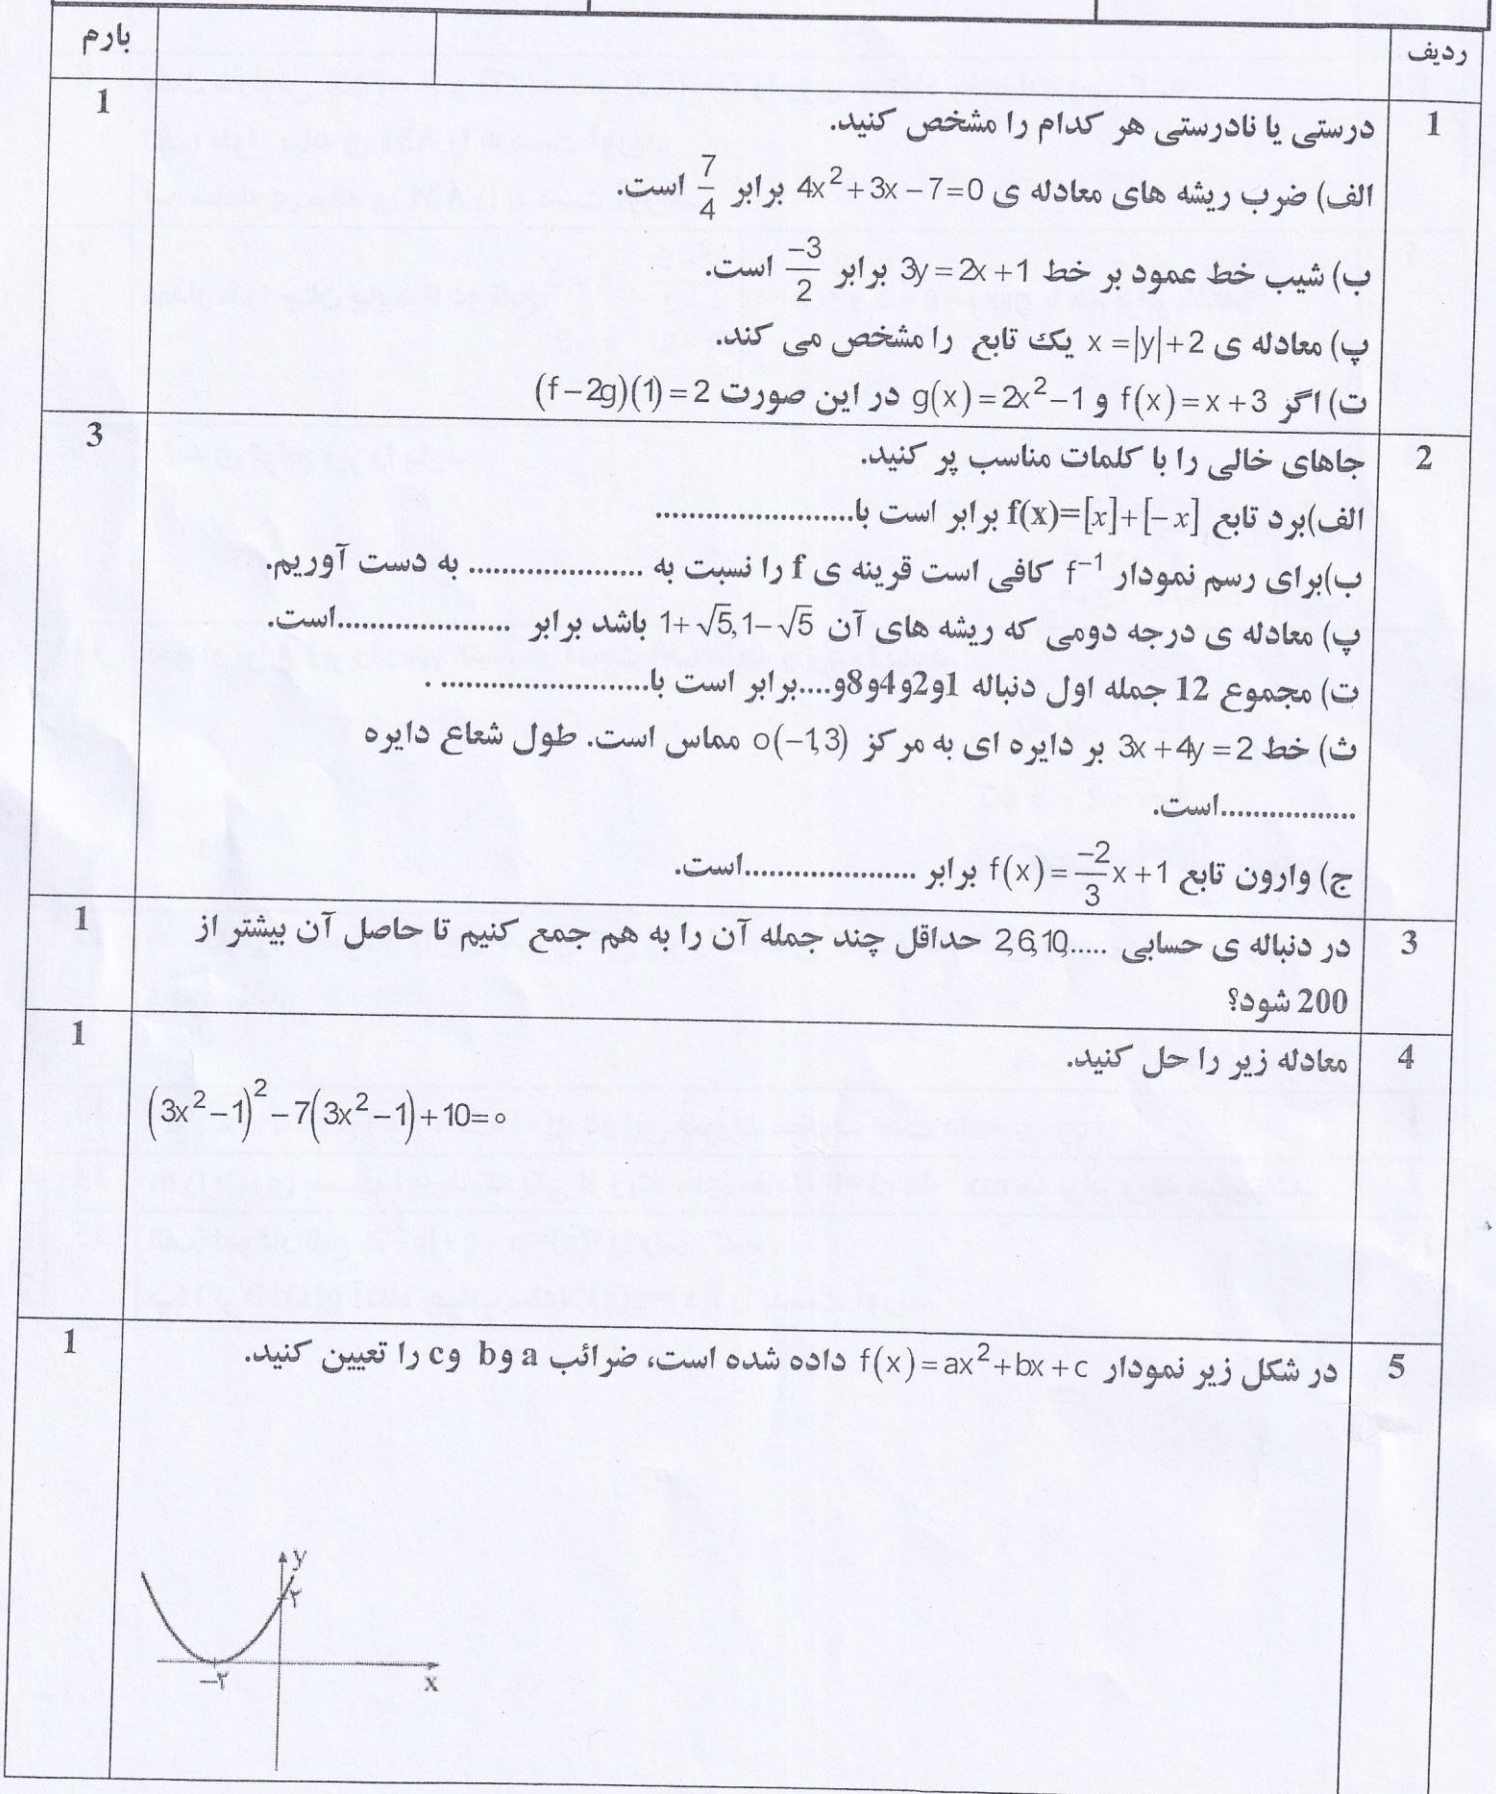 ردیف بارم
1 درستی یا نادرستی هر کدام را مشخص کنید. 1
الف) ضرب ریشه های معادله ی 4x²+3x−7=0 برابر 7/4 است.
ب) شیب خط عمود بر خط 3y=2x+1 برابر −3/2 است.
پ) معادله ی x=|y|+2 یک تابع را مشخص می کند.
ت) اگر f(x)=x+3 و g(x)=2x²−1 در این صورت (f−2g)(1)=2
2 جاهای خالی را با کلمات مناسب پر کنید. 3
الف)برد تابع f(x)=[x]+[−x] برابر است با........................
ب)برای رسم نمودار f⁻¹ کافی است قرینه ی f را نسبت به ..................... به دست آوریم.
پ) معادله ی درجه دومی که ریشه های آن 1+√5,1−√5 باشد برابر .....................است.
ت) مجموع 12 جمله اول دنباله 1و2و4و8و....برابر است با......................... .
ث) خط 3x+4y=2 بر دایره ای به مرکز o(−1,3) مماس است. طول شعاع دایره
.................است.
ج) وارون تابع f(x)=−2/3x+1 برابر .....................است.
3 در دنباله ی حسابی 2,6,10,..... حداقل چند جمله آن را به هم جمع کنیم تا حاصل آن بیشتر از 1
200 شود؟
4 معادله زیر را حل کنید. 1
(3x²−1)²−7(3x²−1)+10=۰
5 در شکل زیر نمودار f(x)=ax²+bx+c داده شده است، ضرائب a وb وc را تعیین کنید. 1
y
۲
−۲
x